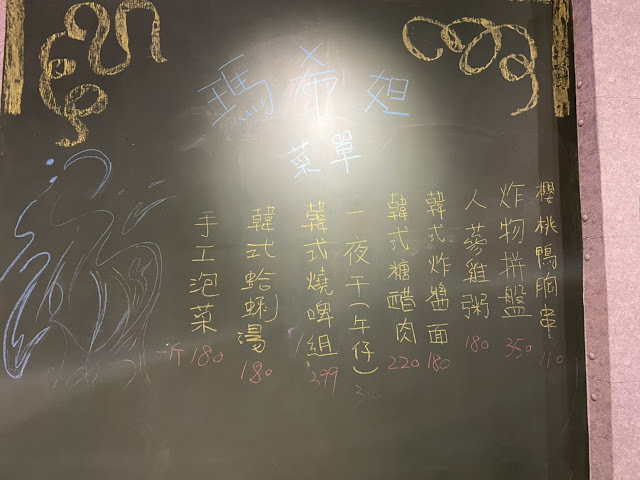 瑪希妲
菜單
櫻桃鴨胸串 110
炸物拼盤 350
人蔘雞粥 180
韓式炸醬面 180
韓式糖醋肉 220
一夜干(午仔)
韓式燒啤組 399
韓式蛤蜊湯 180
手工泡菜 一斤180